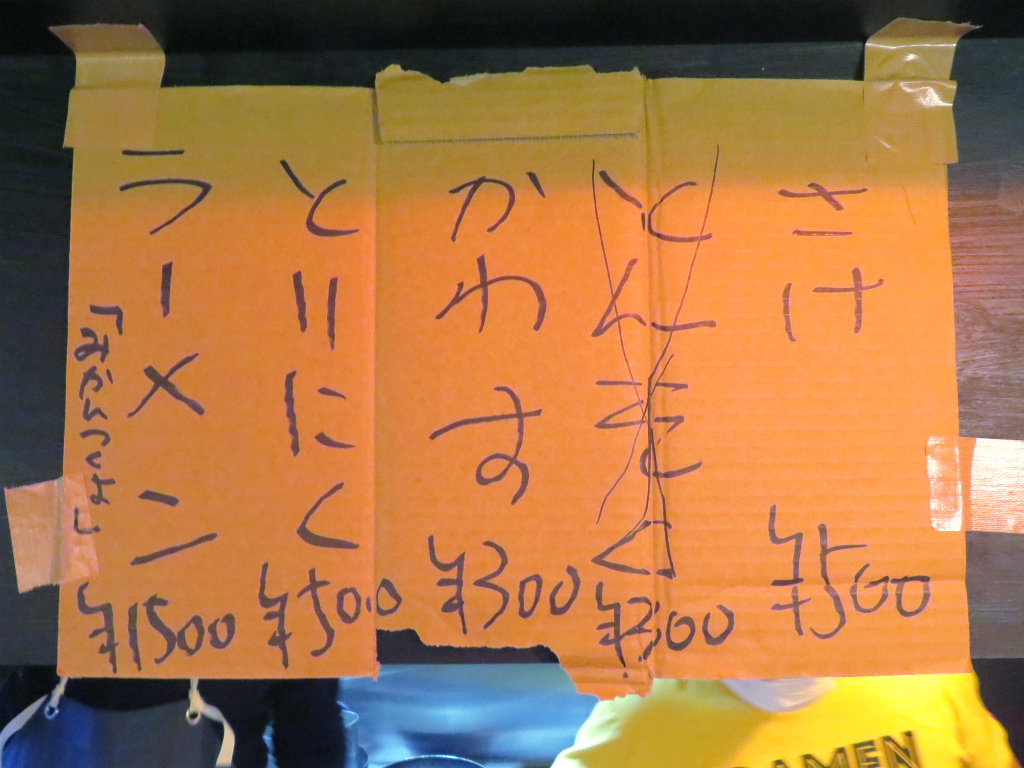 さけ ¥500
かわす ¥300
とりにく ¥500
ラーメン ¥1500
「みかんつくよ」
RAMEN